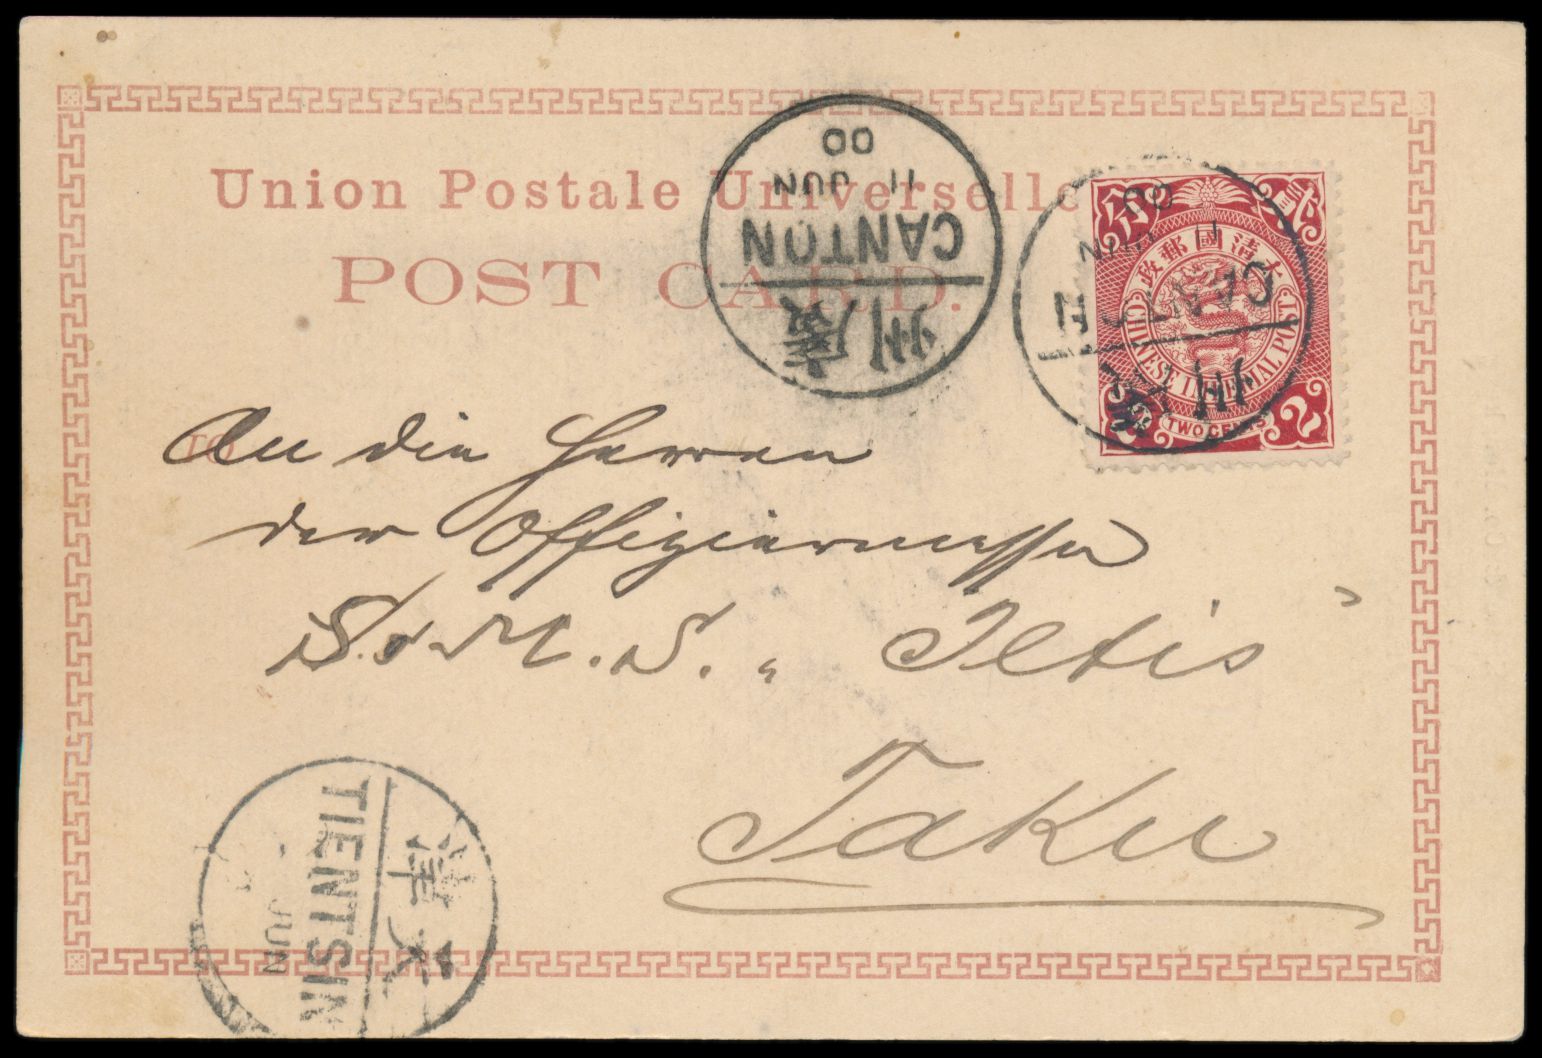 Union Postale Universelle
POST CARD.
TO
CANTON
11 JUN
00
廣州
CANTON
11 JUN
00
州
大清國郵政
CHINESE IMPERIAL POST
2
TWO CENTS
2
An die Herren
der Offiziermesse
S.M.S. „Iltis"
Taku
天津
TIENTSIN
JUN